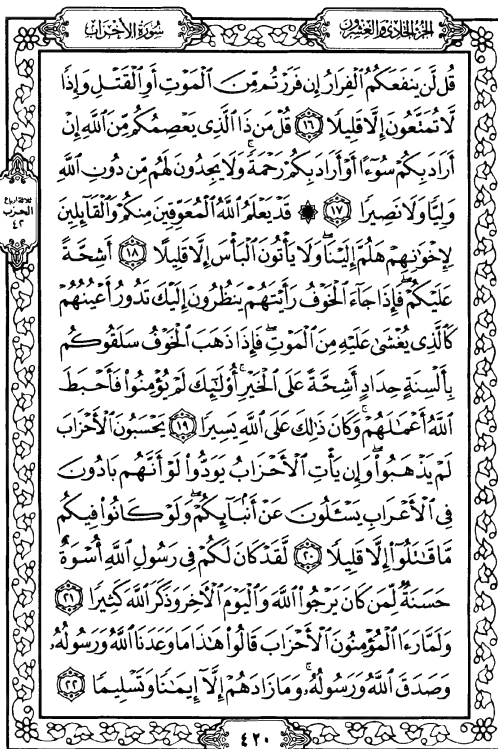 الجزء الحادي والعشرون
سورة الأحزاب
قُل لَّن يَنفَعَكُمُ الْفِرَارُ إِن فَرَرْتُم مِّنَ الْمَوْتِ أَوِ الْقَتْلِ وَإِذًا
لَّا تُمَتَّعُونَ إِلَّا قَلِيلًا ١٦ قُلْ مَن ذَا الَّذِي يَعْصِمُكُم مِّنَ اللَّهِ إِنْ
أَرَادَ بِكُمْ سُوءًا أَوْ أَرَادَ بِكُمْ رَحْمَةً ۚ وَلَا يَجِدُونَ لَهُم مِّن دُونِ اللَّهِ
وَلِيًّا وَلَا نَصِيرًا ١٧ ۞ قَدْ يَعْلَمُ اللَّهُ الْمُعَوِّقِينَ مِنكُمْ وَالْقَائِلِينَ
لِإِخْوَٰنِهِمْ هَلُمَّ إِلَيْنَا ۖ وَلَا يَأْتُونَ الْبَأْسَ إِلَّا قَلِيلًا ١٨ أَشِحَّةً
عَلَيْكُمْ ۖ فَإِذَا جَاءَ الْخَوْفُ رَأَيْتَهُمْ يَنظُرُونَ إِلَيْكَ تَدُورُ أَعْيُنُهُمْ
كَالَّذِي يُغْشَىٰ عَلَيْهِ مِنَ الْمَوْتِ ۖ فَإِذَا ذَهَبَ الْخَوْفُ سَلَقُوكُم
بِأَلْسِنَةٍ حِدَادٍ أَشِحَّةً عَلَى الْخَيْرِ ۚ أُولَٰئِكَ لَمْ يُؤْمِنُوا فَأَحْبَطَ
اللَّهُ أَعْمَٰلَهُمْ ۚ وَكَانَ ذَٰلِكَ عَلَى اللَّهِ يَسِيرًا ١٩ يَحْسَبُونَ الْأَحْزَابَ
لَمْ يَذْهَبُوا ۖ وَإِن يَأْتِ الْأَحْزَابُ يَوَدُّوا لَوْ أَنَّهُم بَادُونَ
فِي الْأَعْرَابِ يَسْـَٔلُونَ عَنْ أَنبَائِكُمْ ۖ وَلَوْ كَانُوا فِيكُم
مَّا قَٰتَلُوا إِلَّا قَلِيلًا ٢٠ لَّقَدْ كَانَ لَكُمْ فِي رَسُولِ اللَّهِ أُسْوَةٌ
حَسَنَةٌ لِّمَن كَانَ يَرْجُوا اللَّهَ وَالْيَوْمَ الْآخِرَ وَذَكَرَ اللَّهَ كَثِيرًا ٢١
وَلَمَّا رَءَا الْمُؤْمِنُونَ الْأَحْزَابَ قَالُوا هَٰذَا مَا وَعَدَنَا اللَّهُ وَرَسُولُهُ
وَصَدَقَ اللَّهُ وَرَسُولُهُ ۚ وَمَا زَادَهُمْ إِلَّا إِيمَٰنًا وَتَسْلِيمًا ٢٢
ثلاثة أرباع
الحزب
٤٢
٤٢٠